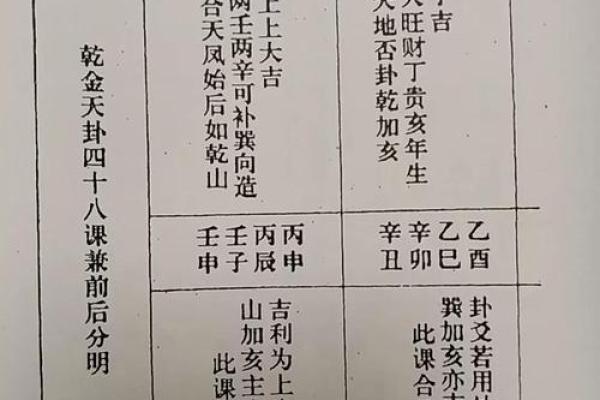 吉
旺财丁贵亥年生
地否卦乾加亥
乙酉
乙巳
辛卯
辛丑
卦爻若用
巽加亥亦
此课合
上上大吉
两壬两辛可补巽向造
合天凤始后如乾山
丙申
丙辰
壬子
壬申
吉利为上
山加亥主
此课
乾金天卦四十八课兼前后分明